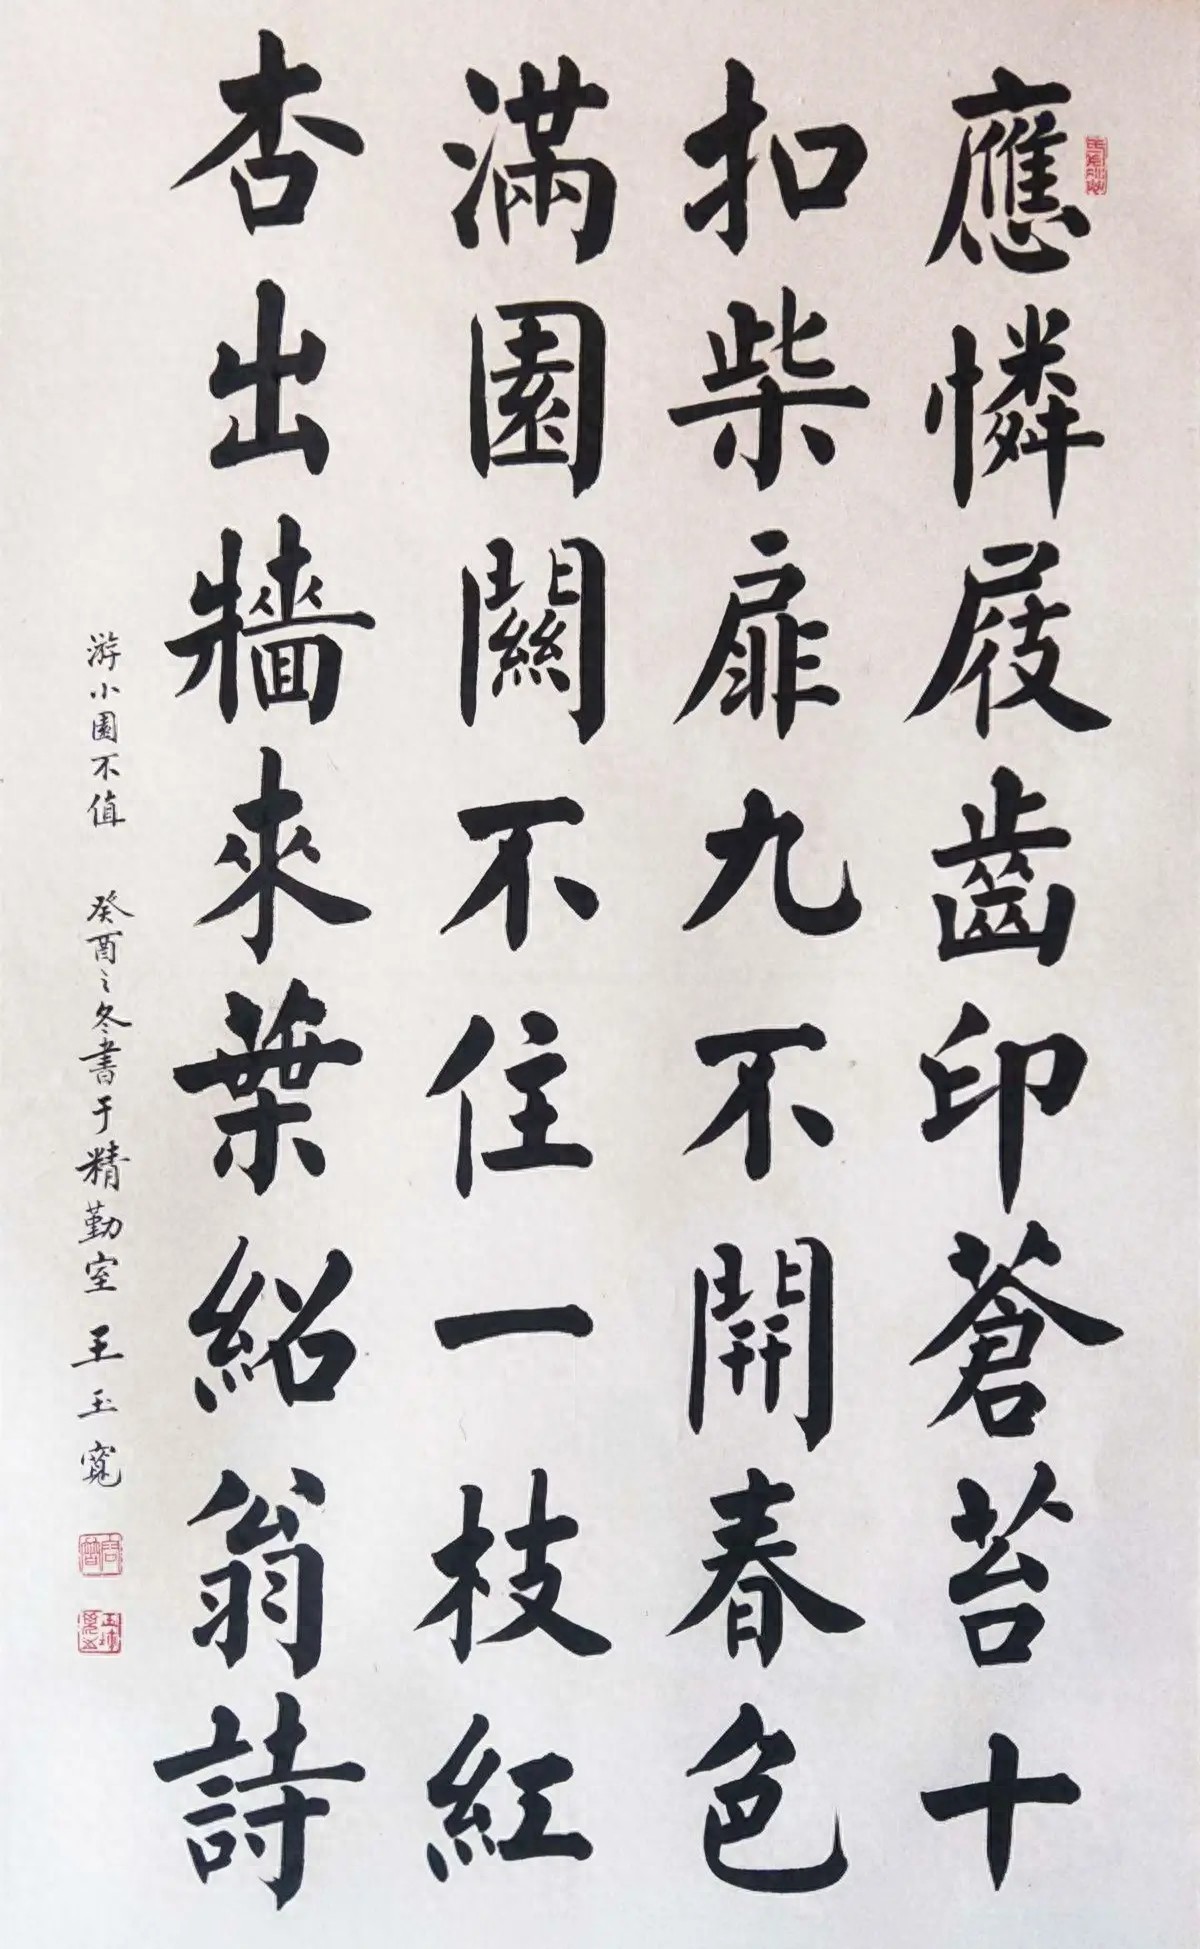 應憐屐齒印蒼苔十
扣柴扉九不開春色
滿園關不住一枝紅
杏出牆來葉紹翁詩
游小園不值 癸酉之冬書于精勤室 王玉寬